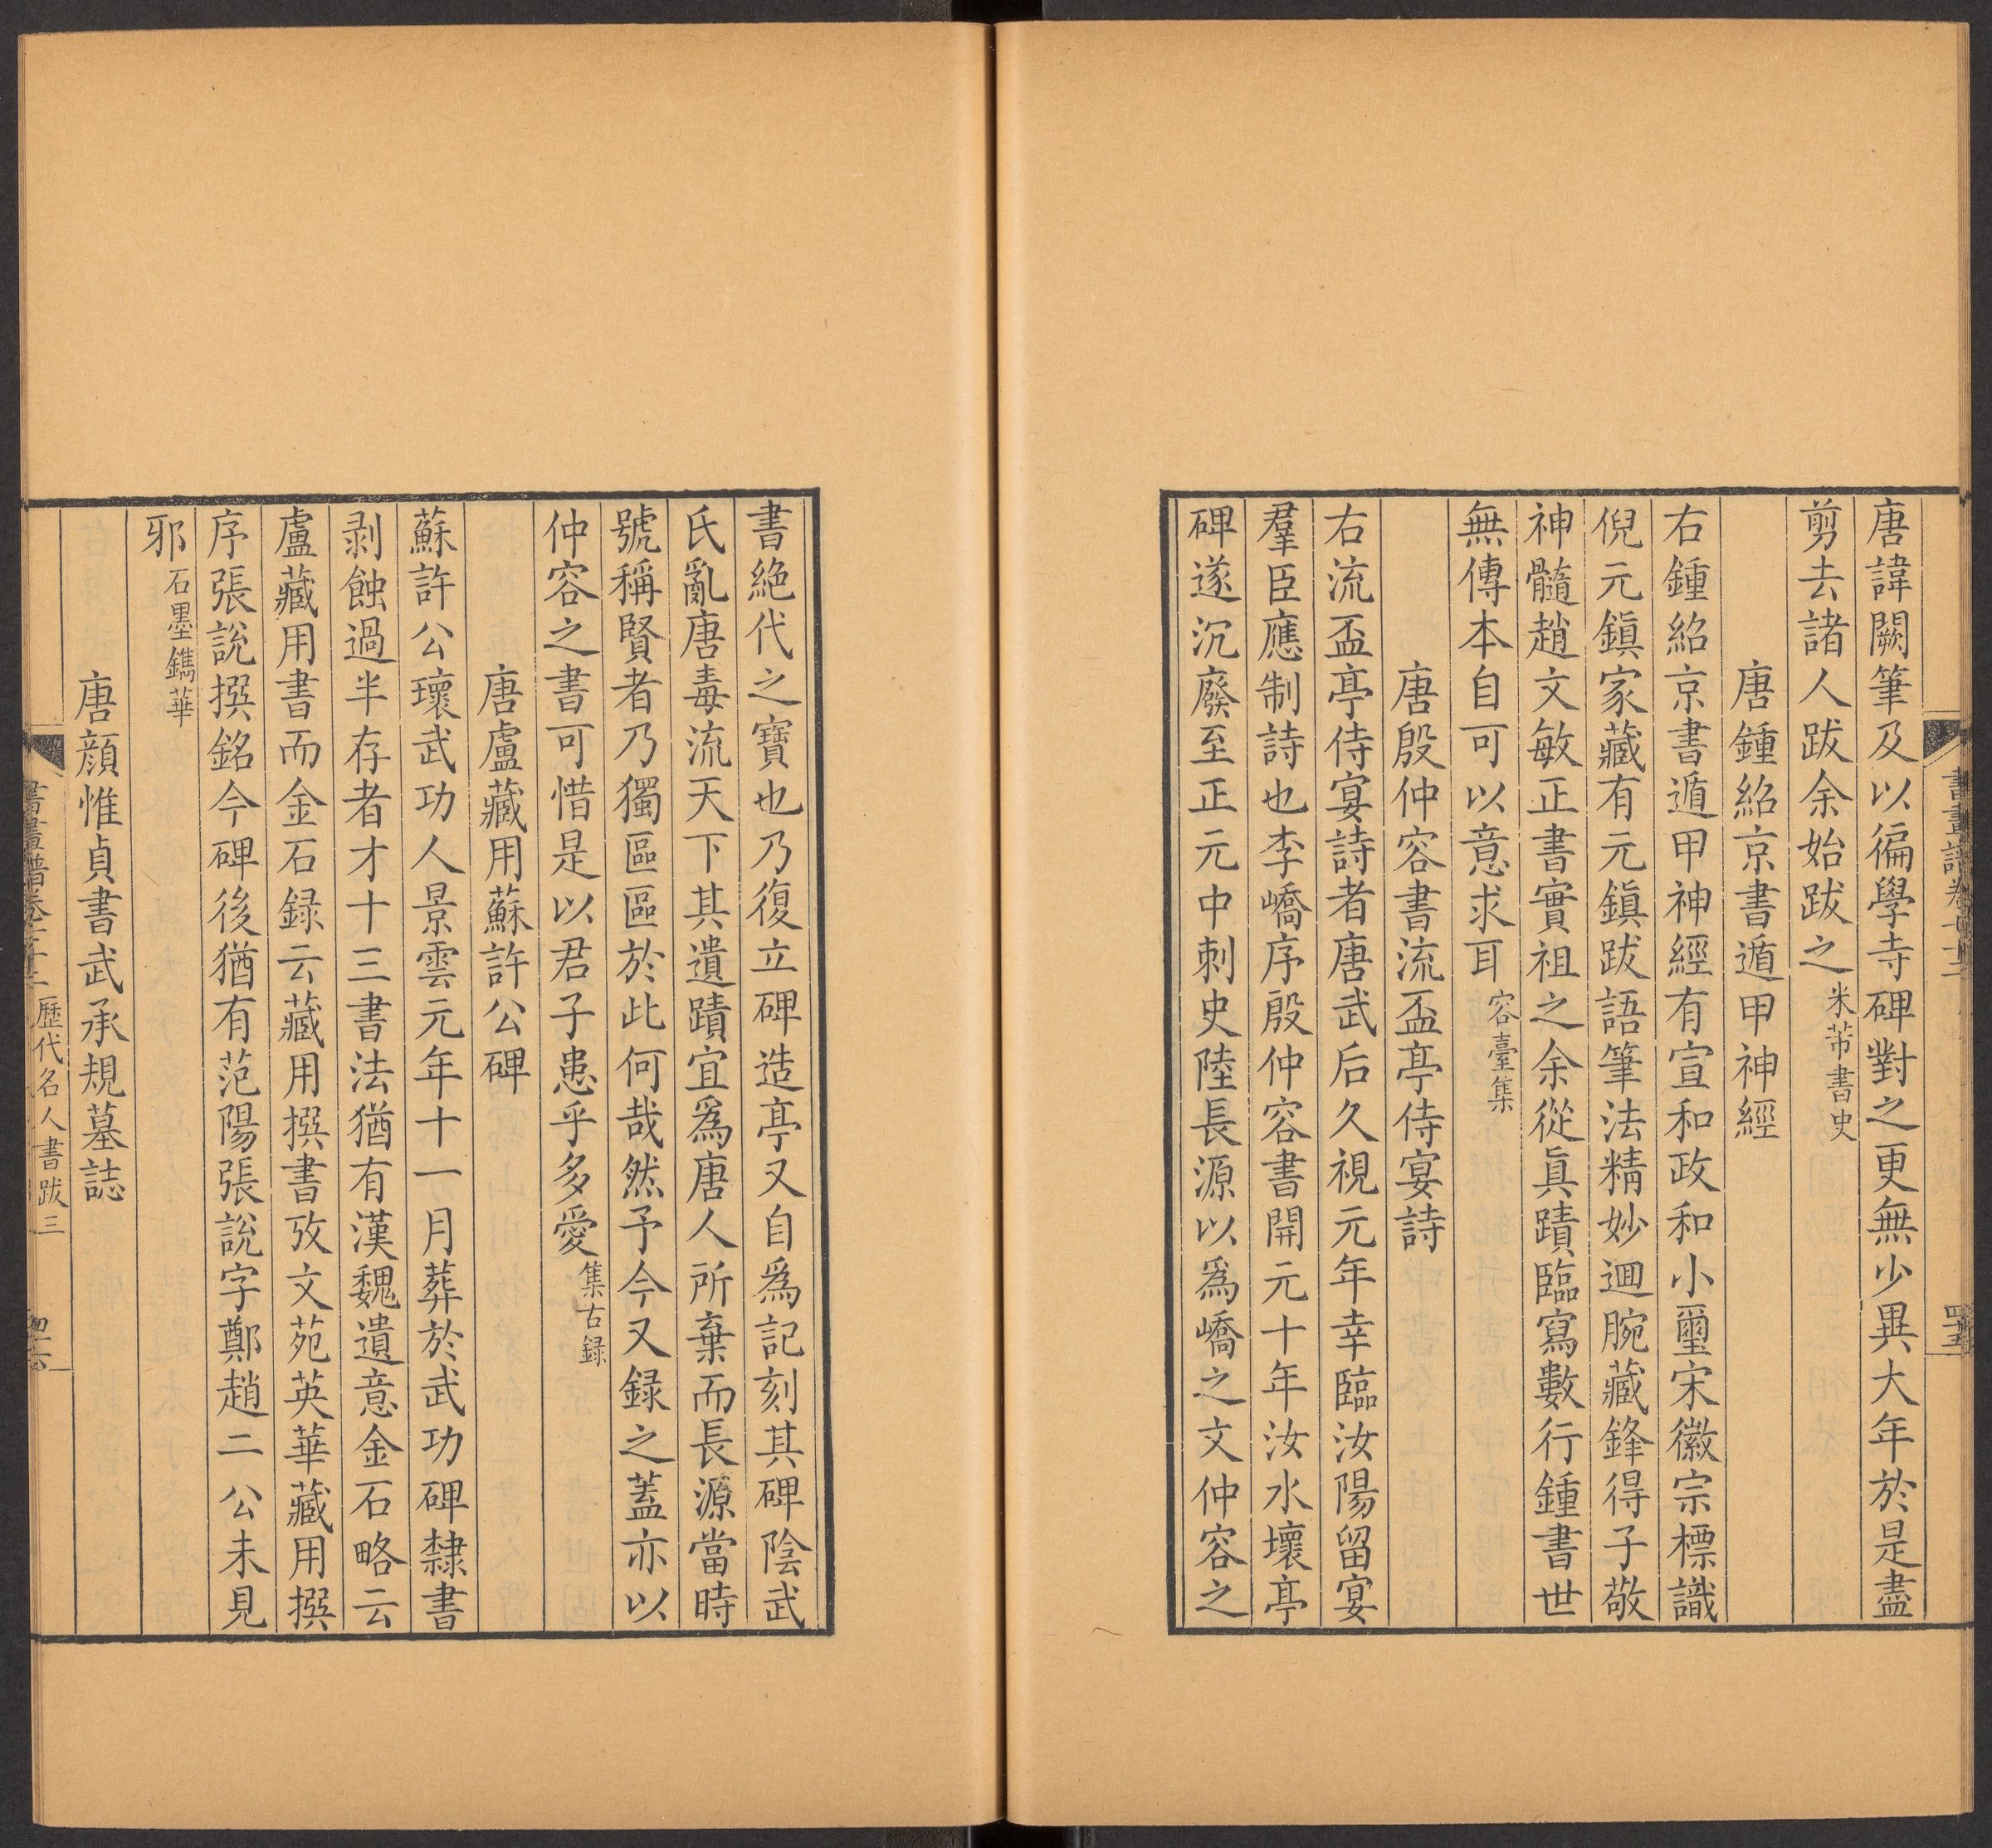 唐諱闕筆及以徧學寺碑對之更無少異大年於是盡
剪去諸人跋余始跋之米芾書史
唐鍾紹京書遁甲神經
右鍾紹京書遁甲神經有宣和政和小璽宋徽宗標識
倪元鎮家藏有元鎮跋語筆法精妙迴腕藏鋒得子敬
神髓趙文敏正書實祖之余從真蹟臨寫數行鍾書世
無傳本自可以意求耳容臺集
唐殷仲容書流盃亭侍宴詩
右流盃亭侍宴詩者唐武后久視元年幸臨汝陽留宴
羣臣應制詩也李嶠序殷仲容書開元十年汝水壞亭
碑遂沉廢至正元中刺史陸長源以爲嶠之文仲容之
書絶代之寶也乃復立碑造亭又自爲記刻其碑陰武
氏亂唐毒流天下其遺蹟宜爲唐人所棄而長源當時
號稱賢者乃獨區區於此何哉然予今又録之蓋亦以
仲容之書可惜是以君子患乎多愛集古録
唐盧藏用蘇許公碑
蘇許公瓌武功人景雲元年十一月葬於武功碑隸書
剥蝕過半存者才十三書法猶有漢魏遺意金石略云
盧藏用書而金石録云藏用撰書攷文苑英華藏用撰
序張說撰銘今碑後猶有范陽張說字鄭趙二公未見
邪石墨鐫華
唐顔惟貞書武承規墓誌
歷代名人書跋三